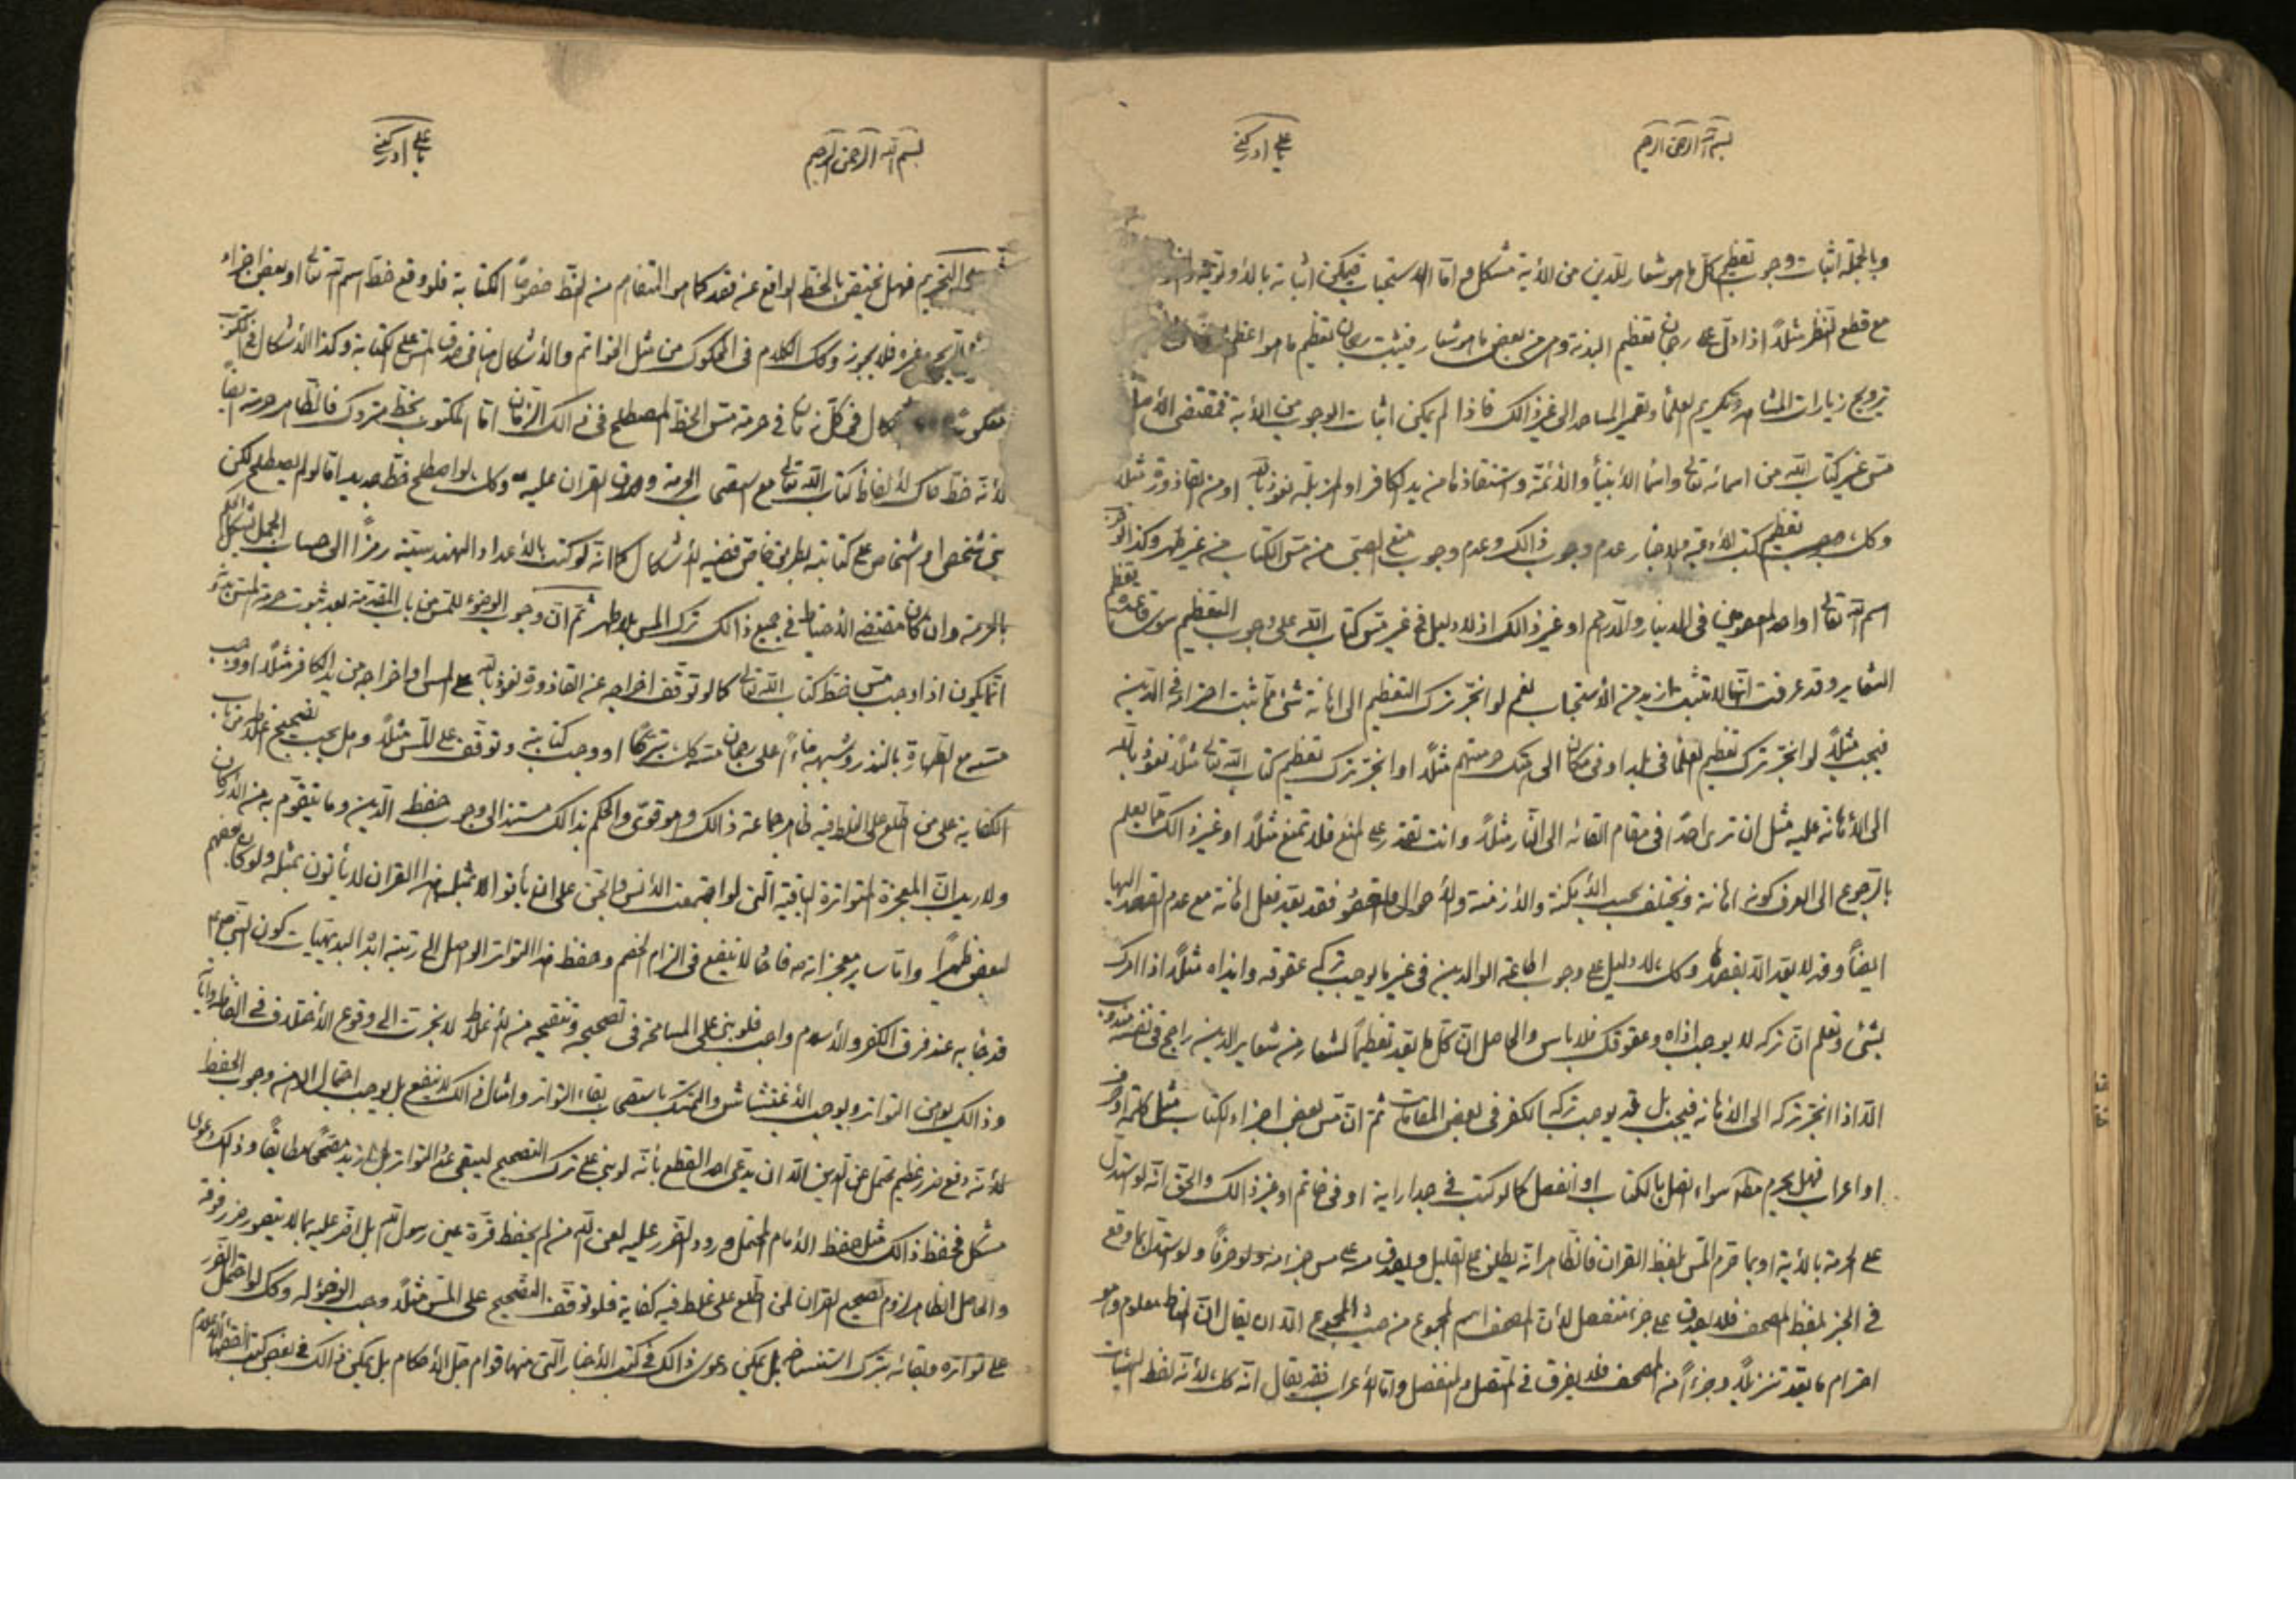 بسم الله الرحمن الرحيم
يا علي ادركني
وبالجملة اثبات وجوب تعظيم كل ما هو شعار للدين من الأية مشكل واما الاستحباب فيمكن اثباته بالأولوية
مع قطع النظر مثلاً اذا دل على رجحان تعظيم البدنة وهي من بعض ما هو شعار فيثبت رجحان تعظيم ما هو اعظم
ترويج زيارات المشاهد وتكريم العلماء وتعمير المساجد الى غير ذالك فاذا لم يمكن اثبات الوجوب من الأية فمقتضى الأصل
مس غير كتاب الله من اسمائه تعالى واسماء الأنبياء والأئمة واستنقاذها من يد الكافر او المزبلة نعوذ بالله او من القاذورة مثلاً
وكك وجوب تعظيم كتب الأدعية والاخبار عدم وجوب ذالك وعدم وجوب منع الصبي من مس الكتاب من غير طهر وكذا
اسم الله تعالى او احد المعصومين في الدينار والدرهم او غير ذالك اذ لا دليل في غير مس كتاب الله على وجوب التعظيم سوى قاعدة تعظيم
الشعاير وقد عرفت انها لا تثبت ازيد من الأستحباب نعم لو انجر ترك التعظيم الى اهانة شئ مما ثبت احترامه في الدين
فيجب مثلاً لو انجر ترك تعظيم العلماء في بلد او في مكان الى هتك حرمتهم مثلاً او انجر ترك تعظيم كتاب الله تعالى مثلاً نعوذ بالله
الى الأهانة عليه مثل ان ترى احداً في مقام القائه الى النار مثلاً وانت تقدر على المنع فلا تمنع مثلاً او غير ذالك مما يعلم
بالرجوع الى العرف كونه اهانة ويختلف بحسب الأمكنة والأزمنة والأحوال والقصود فقد يعد فعل اهانة مع عدم القصد اليها
ايضاً وقد لا يعد الا بقصدها وكك لا دليل على وجوب اطاعة الوالدين في غير ما يوجب تركه عقوقه وايذاه مثلاً اذا امرك
بشئ وتعلم ان تركه لا يوجب اذاه وعقوقك فلا باس والحاصل ان كل ما يعد تعظيماً لشعار من شعاير الدين راجح في نفسه مندوب
الا اذا انجر تركه الى الأهانة فيجب بل قد يوجب تركه الكفر في بعض المقامات ثم ان مس بعض اجزاء الكتاب مثل كلمة او حرف
او اعراب فهل يحرم مطلقا سواء اتصل بالكتاب او انفصل كما لو كتب في جدار اية او في خاتم او غير ذالك والحق انه لو استدل
على الحرمة بالأية او بما حرم المس بلفظ القران فالظاهر انه يطلق على القليل ويصدق مسه على مس جزء منه ولو حرفاً ولو استدل بما وقع
في الخبر لفظ المصحف فلا يصدق على جزء منفصل لأن المصحف اسم لمجموع من حيث المجموع الا ان يقال ان المناط معلوم وهو
احترام ما يعد تنزيلاً وجزءاً من المصحف فلا يفرق في المتصل والمنفصل واما الأعراب فقد يقال انه كك لأنه لفظ
بسم الله الرحمن الرحيم
يا علي ادركني
على التحريم فهل يختص بالخط الواقع عن قصد كما هو المتفاهم من لفظ خصوصاً الكتابة فلو وقع خط اسم الله تعالى او بعض اجزاء
غيره فلا يجوز وكك الكلام في المحكوك من مثل الخواتم والأشكال هنا في صدق المس على الكتابة وكذا الأشكال في المكتوب
في كل زمان في حرمة مس الخط المصطلح في ذالك الزمان اما المكتوب بخط متروك فالظاهر حرمته ايضاً
لأنه خط حاك لألفاظ كتاب الله تعالى مع استصحاب الحرمة وصدق القران عليه وكك لو اصطلح خط جديد اما لو لم يصطلح لكن
بنى شخص او اشخاص على كتابته بطريق خاص ففيه الأشكال كما انه لو كتب بالأعداد الهندسية رمزاً الى حساب الجمل
بالحرمة وان كان مقتضى الأحتياط في جميع ذالك ترك المس بلا طهر ثم ان وجوب الوضوء للمس من باب المقدمة بعد ثبوت حرمة المس
انما يكون اذا وجب مس خط كتاب الله تعالى كما لو توقف اخراجه عن القاذورة نعوذ بالله على المس او اخراجه من يد الكافر مثلاً او وجب
مسه مع الطهارة بالنذر وشبهه بناءً على رجحان مسه كك تبركاً او وجب كتابته وتوقف على المس مثلاً وهل يجب تصحيح غلطه من باب
الكفاية على من اطلع على الغلط فيه ظاهر جماعة ذالك وهو قوي والحكم بذالك مستند الى وجوب حفظ الدين وما يتقوم به من الأركان
ولا ريب ان المعجزة المتواترة الباقية التي لو اجتمعت الأنس والجن على ان يأتوا بمثل هذا القران لا يأتون بمثله ولو كان بعضهم
لبعض ظهيراً واما ساير معجزاته ص فانها لا تنفع في الزام الخصم وحفظ هذا التواتر الواصل الى رتبة ابده البديهيات كون النبي ص
قد جاء به عند فرق الكفر والأسلام واجب فلو بني على المسامحة في تصحيحه وتنقيحه من الأغلاط لانجرت الى وقوع الأختلاف في الفاظه
وذالك يوهن التواتر ويوجب الأغتشاش والتمسك باستصحاب بقاء التواتر وامثال ذالك لا ينفع بل يوجب احتمال الوهن وجوب الحفظ
لأنه دفع ضرر عظيم محتمل عن الدين الا ان يدعى احد القطع بأنه لو بني على ترك التصحيح ليبقى على التواتر بل ازيد مصححاً مطابقاً وذالك دعوى
مشكل فحفظ ذالك مثل حفظ الأمام المحتمل ورود الضرر عليه لعن الله من لم يحفظ قرة عين رسول الله بل اضر عليه بما لا يتصور ضرر فوقه
والحاصل الظاهر لزوم تصحيح القران لمن اطلع على غلط فيه كفاية فلو توقف التصحيح على المس مثلاً وجب الوضوء له وكك لو احتمل الضرر
على تواتره وبقائه بترك استنساخه بل يمكن دعوى ذالك في كتب الأخبار التي منها قوام جل الأحكام بل يمكن ذالك في بعض كتب